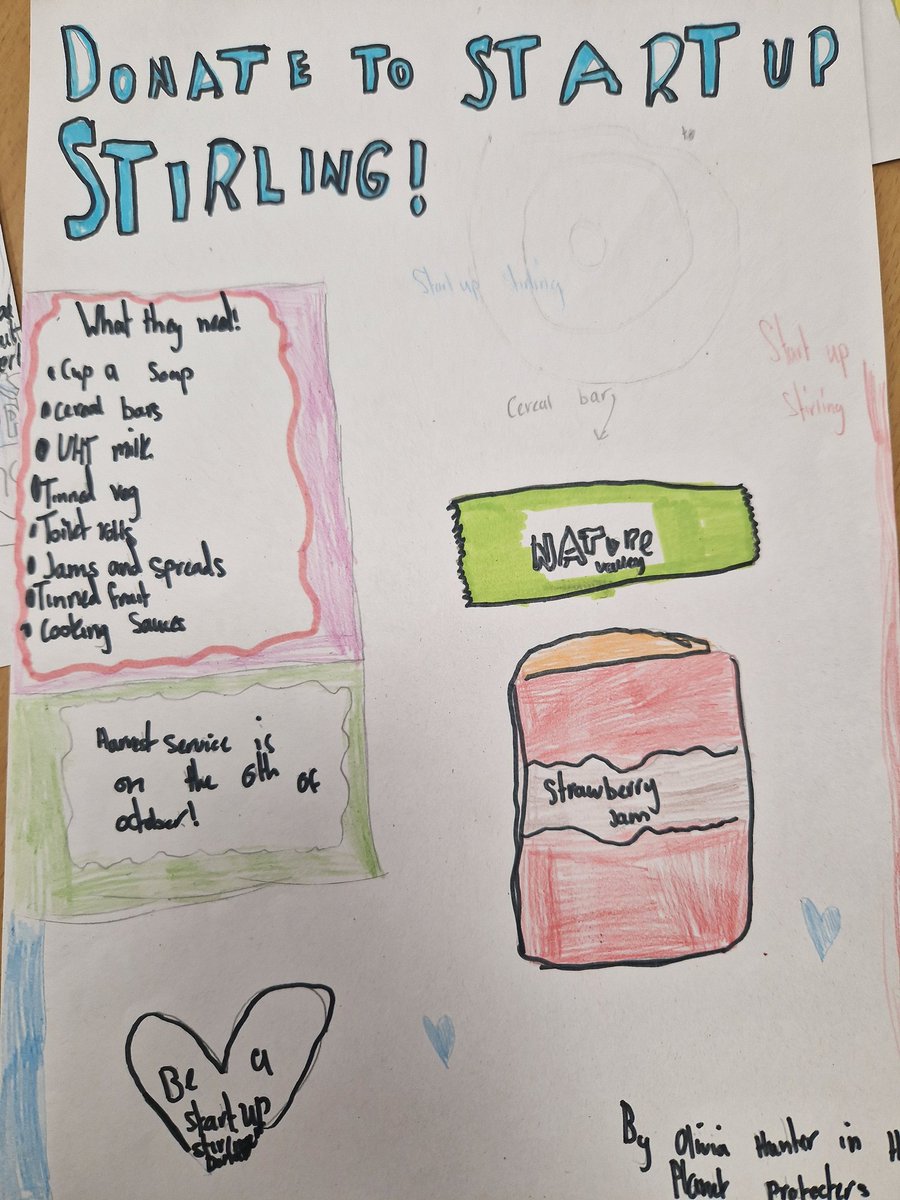 DONATE TO START UP
STIRLING!
Start up Stirling
Start up
Stirling
What they need!
• Cup a Soup
• Cereal bars
• UHT milk
• Tinned veg
• Toilet rolls
• Jams and spreads
• Tinned fruit
• Cooking Sauces
Cereal bar
NATURE
valley
Strawberry
Jam
Harvest service is
on the 6th of
october!
Be a
start up
Stirling
By Olivia Hunter in H
Planet protecters